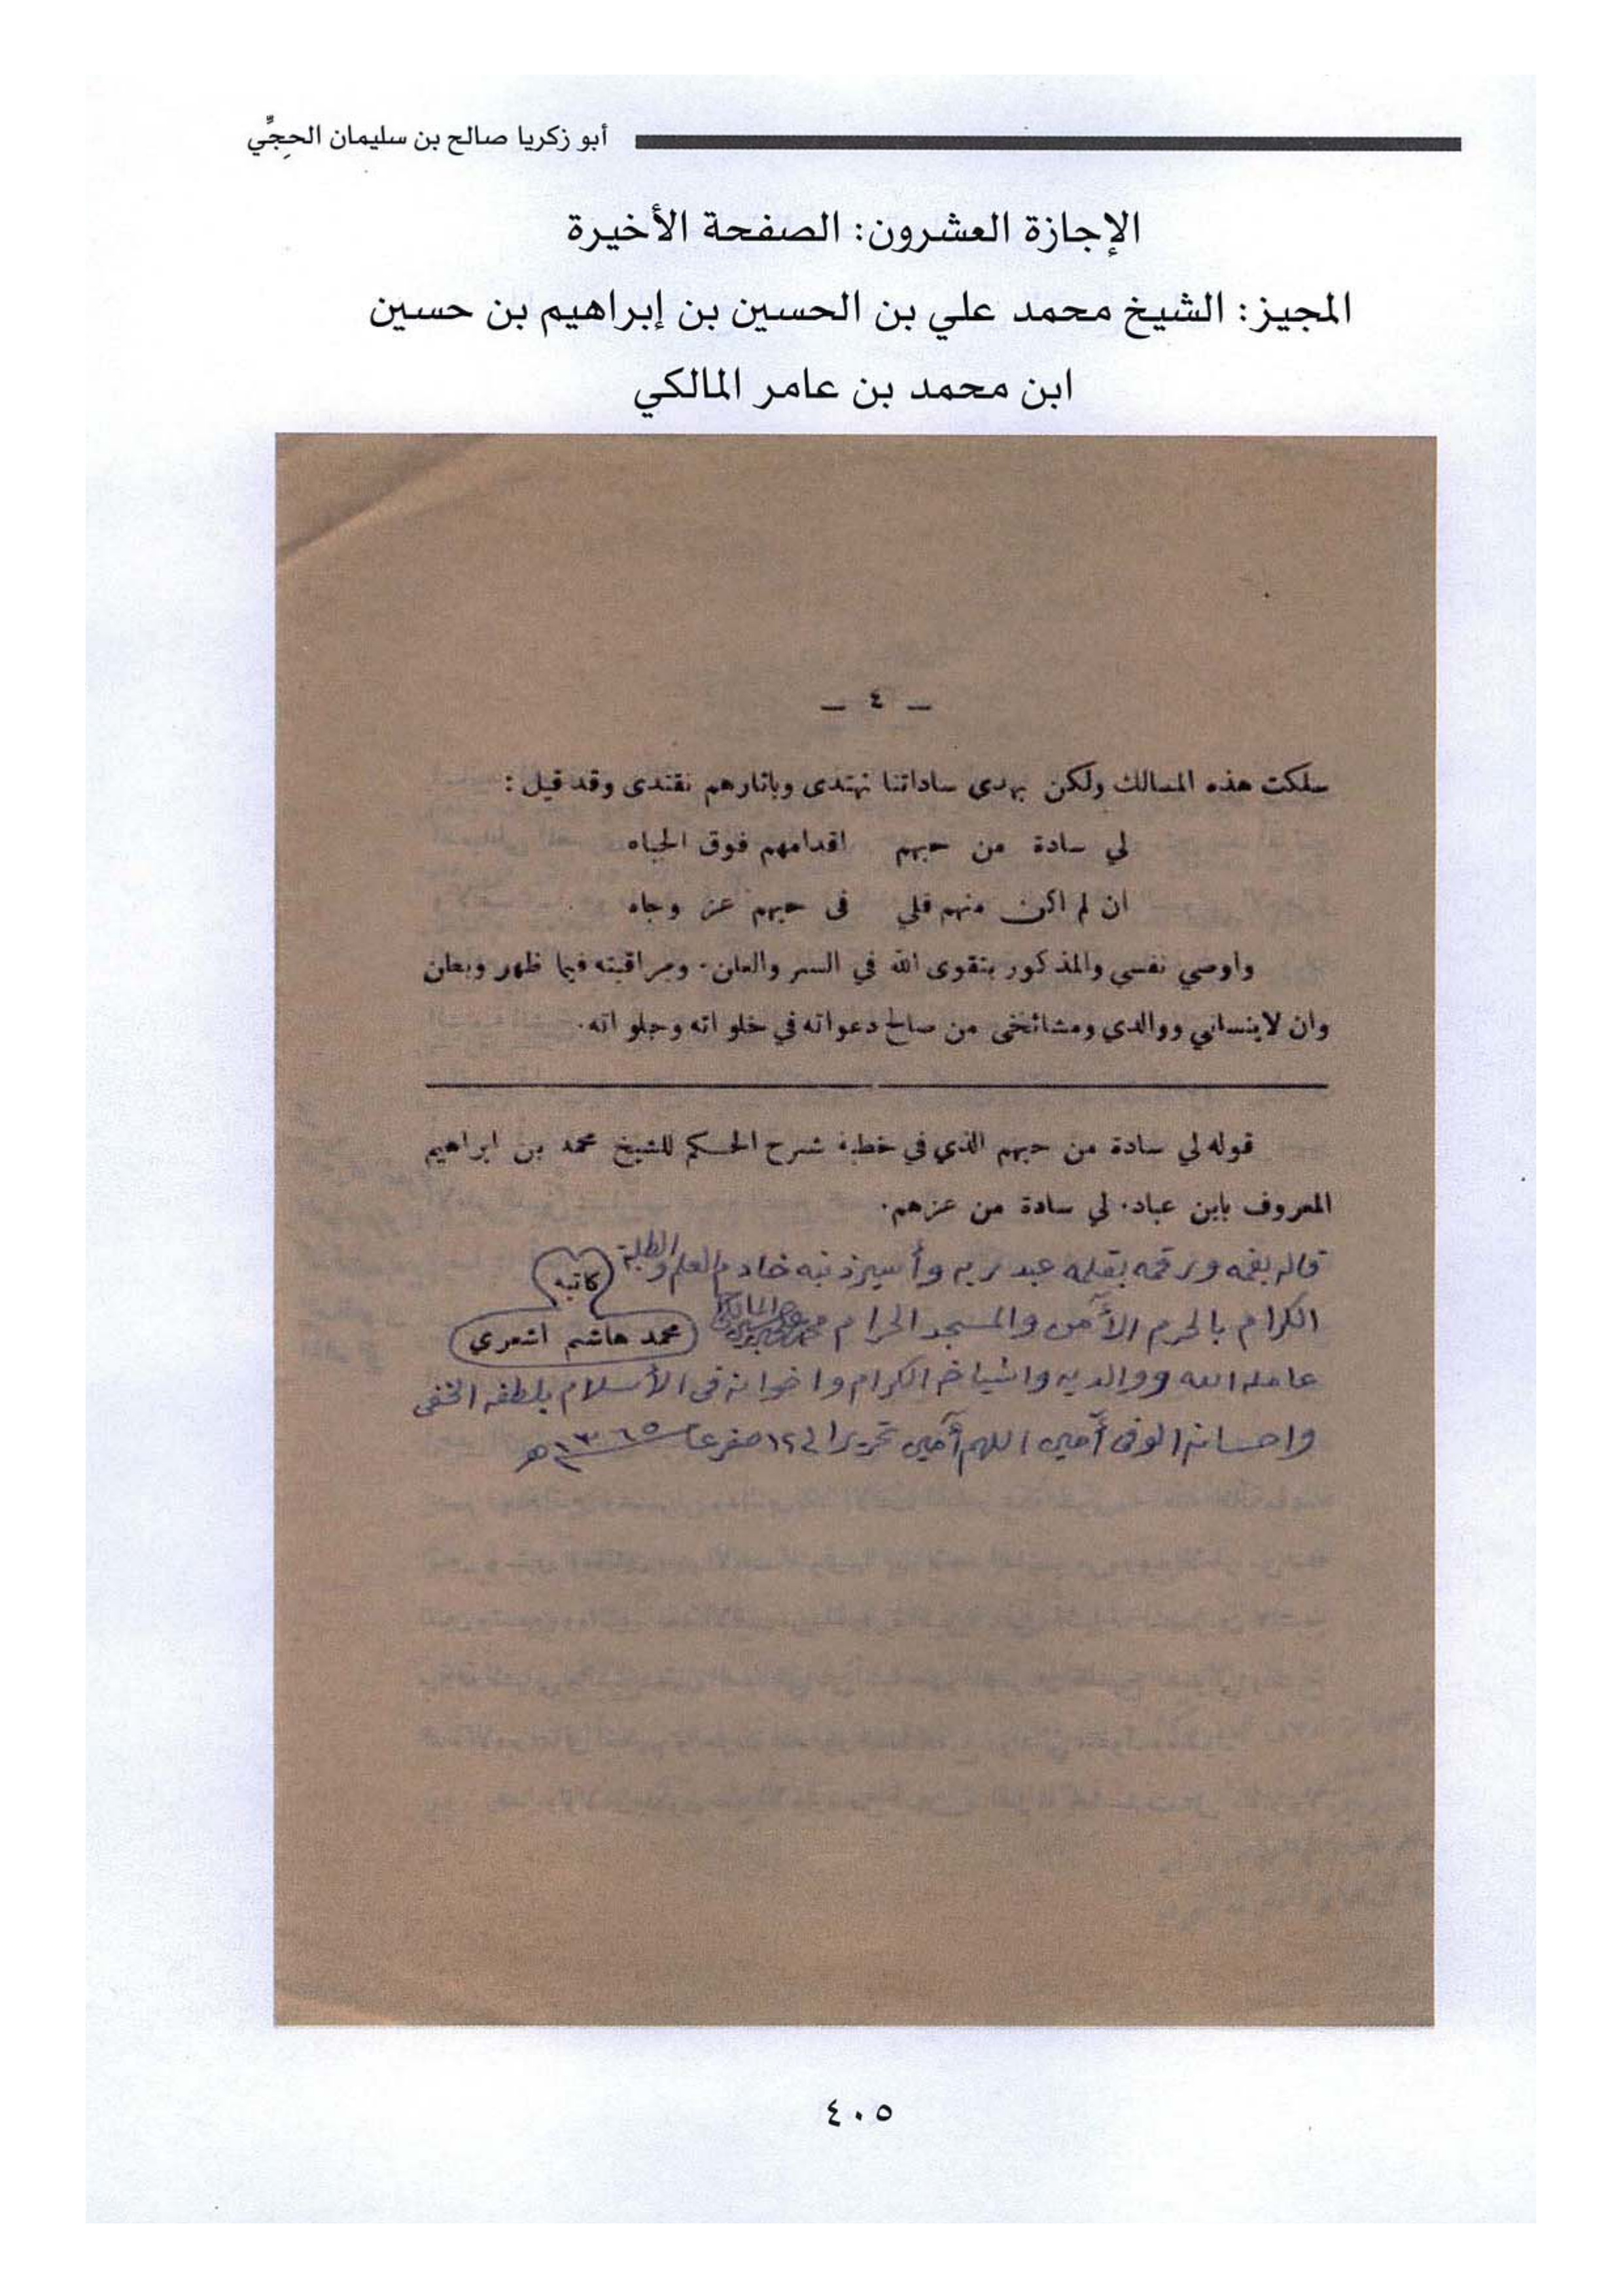 أبو زكريا صالح بن سليمان الحِجِّي
الإجازة العشرون: الصفحة الأخيرة
المجيز: الشيخ محمد علي بن الحسين بن إبراهيم بن حسين
ابن محمد بن عامر المالكي
— ٤ —
سلكت هذه المسالك ولكن بهدى ساداتنا نهتدى وباثارهم نقتدى وقد قيل :
لي سادة من حبهم اقدامهم فوق الجباه
ان لم اكن منهم فلي فى حبهم عز وجاه
واوصي نفسي والمذكور بتقوى الله في السر والعلن. ومراقبته فيما ظهر وبطن
وان لاينساني ووالدي ومشائخى من صالح دعواته في خلواته وجلواته.
قوله لي سادة من حبهم الذي في خطبة شرح الحكم للشيخ محمد بن ابراهيم
المعروف بابن عباد. لي سادة من عزهم.
قاله بفمه ورقمه بقلمه عبد ربه وأسير ذنبه خادم العلم والطلبة
كاتبه
الكرام بالحرم الآمن والمسجد الحرام محمد المالكي
محمد هاشم اشعري
عامله الله ووالديه واشياخه الكرام واخوانه فى الأسلام بلطفه الخفى
واحسانه الوفى آمين اللهم آمين تحريرا فى ١٢ صفر عام ١٣٦٥ هـ
٤٠٥